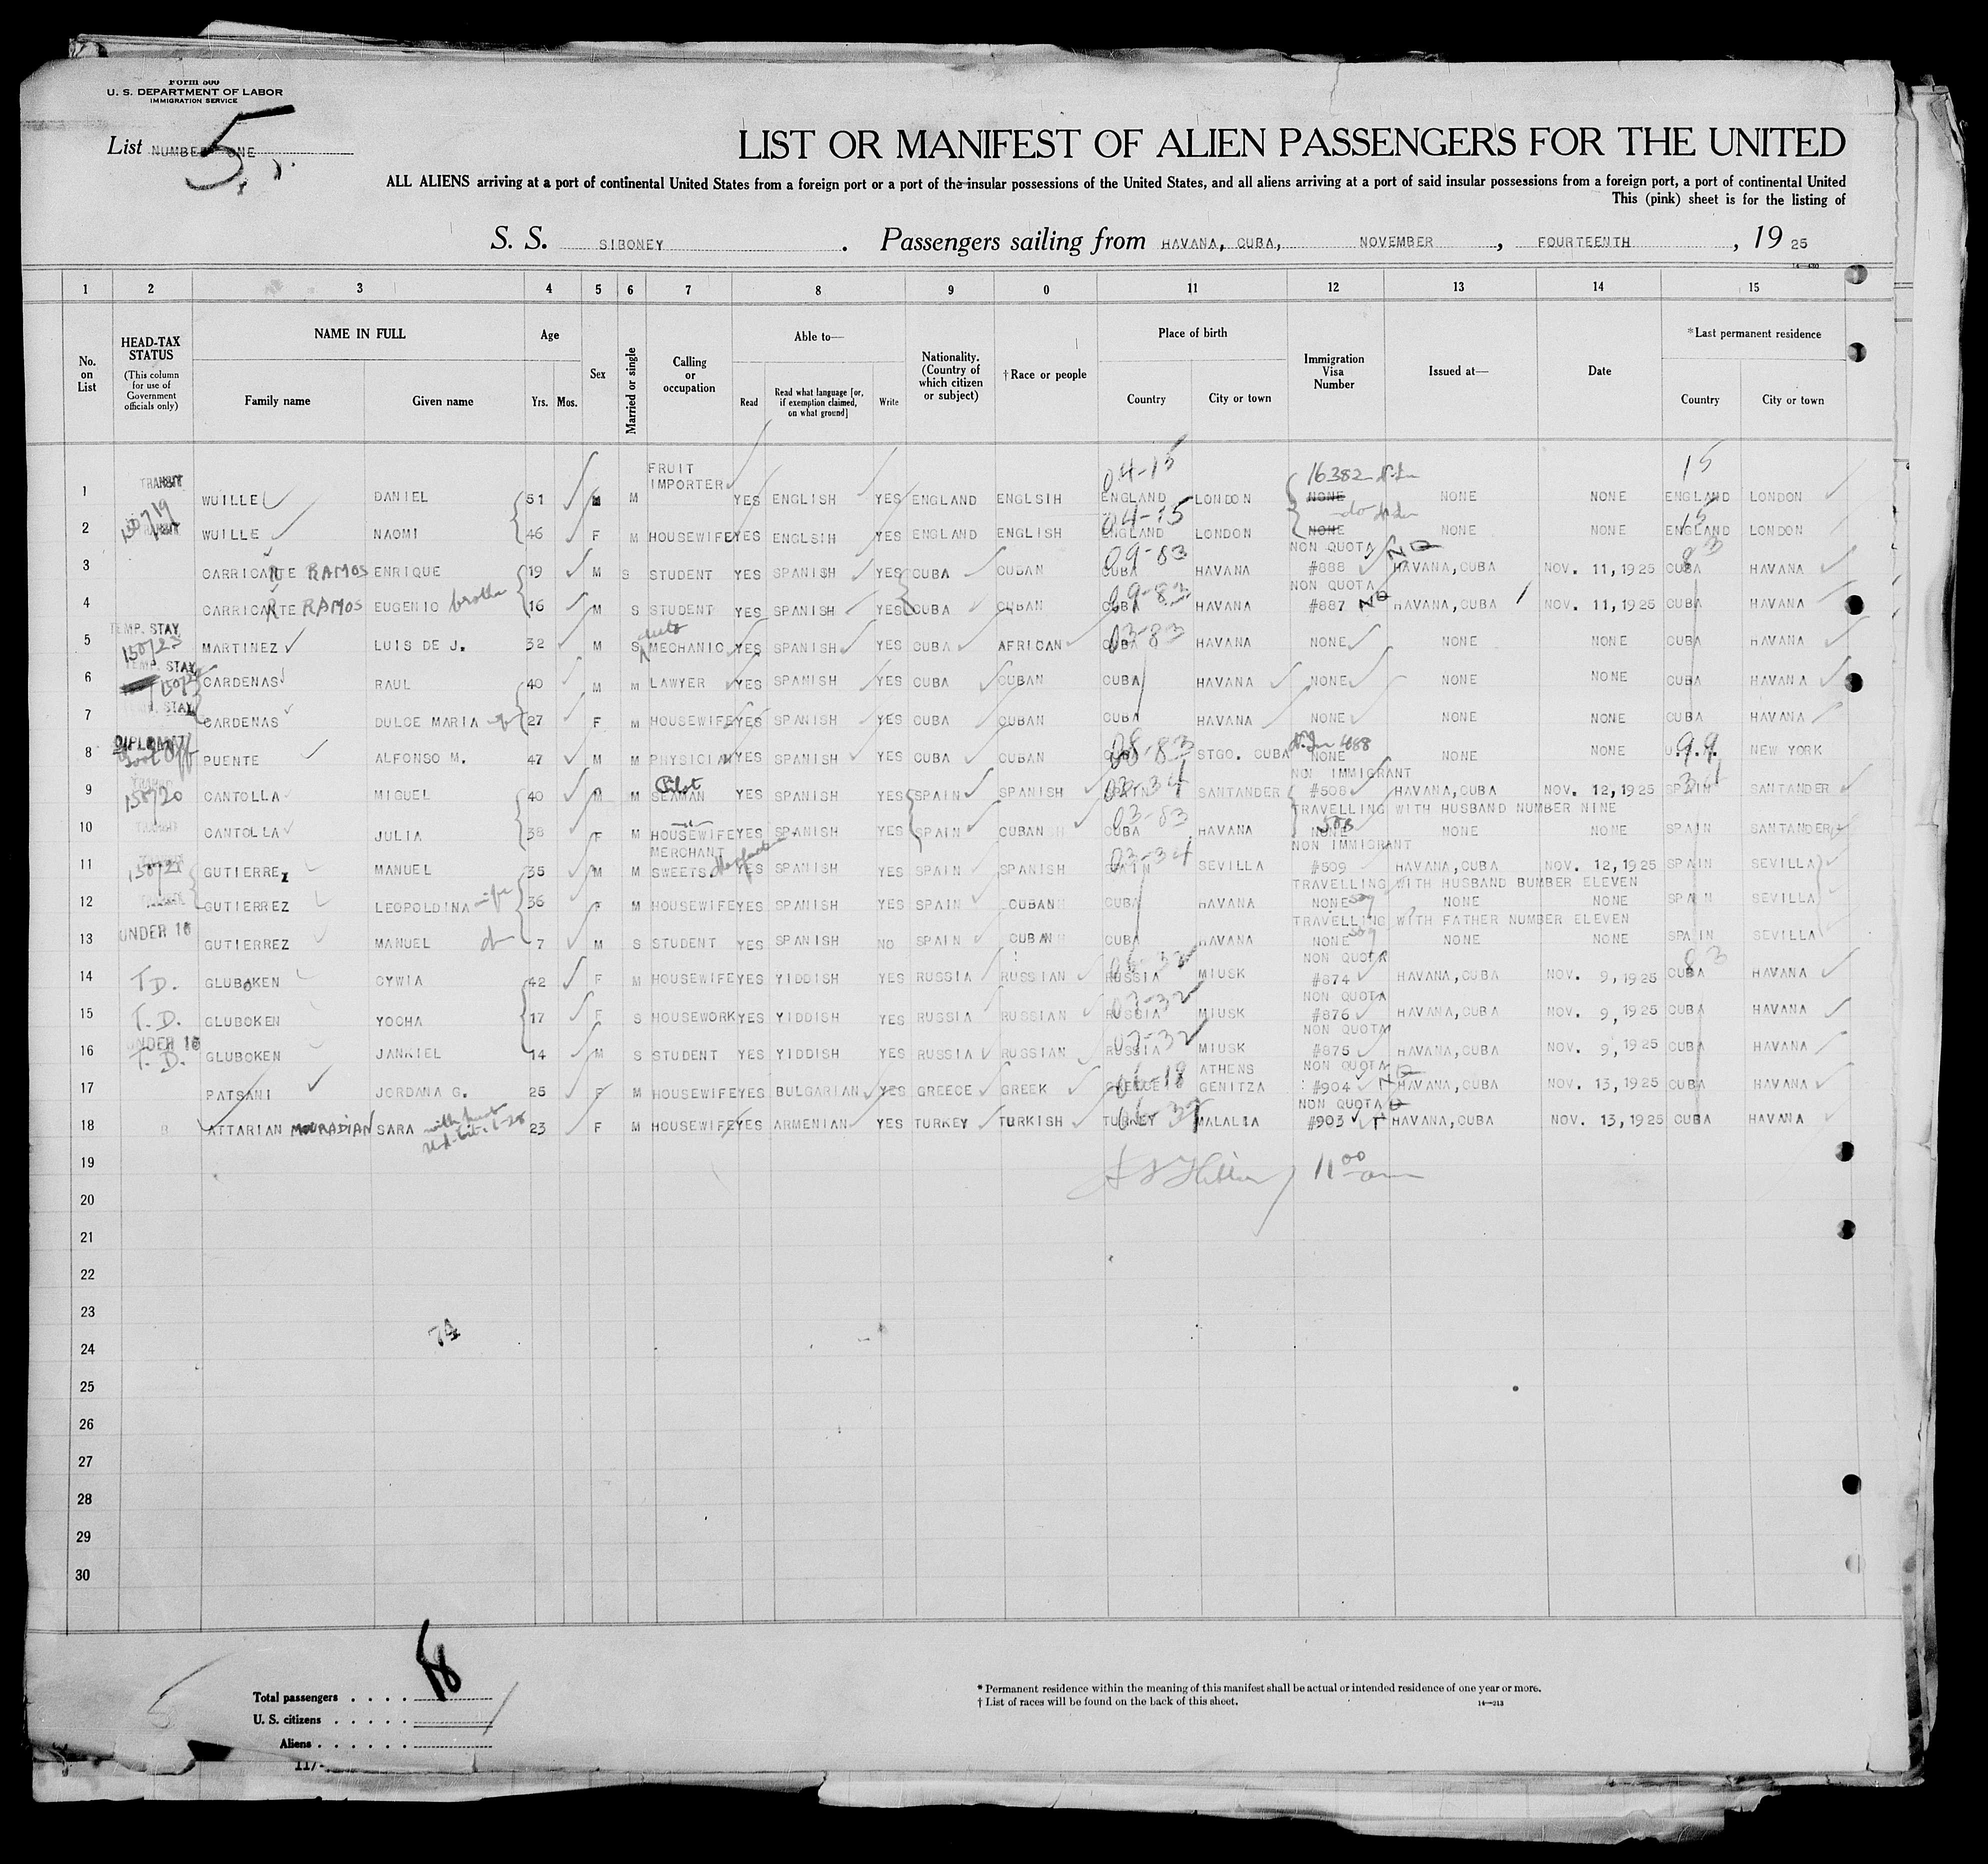 Form 500
U. S. DEPARTMENT OF LABOR
IMMIGRATION SERVICE
List NUMBER ONE 5
LIST OR MANIFEST OF ALIEN PASSENGERS FOR THE UNITED
ALL ALIENS arriving at a port of continental United States from a foreign port or a port of the insular possessions of the United States, and all aliens arriving at a port of said insular possessions from a foreign port, a port of continental United
This (pink) sheet is for the listing of
S. S. SIBONEY . Passengers sailing from HAVANA, CUBA, NOVEMBER , FOURTEENTH , 19 25
14-430
1 2 3 4 5 6 7 8 9 0 11 12 13 14 15
No. on List
HEAD-TAX STATUS (This column for use of Government officials only)
NAME IN FULL Family name Given name
Age Yrs. Mos.
Sex
Married or single
Calling or occupation
Able to— Read Read what language [or, if exemption claimed, on what ground] Write
Nationality. (Country of which citizen or subject)
†Race or people
Place of birth Country City or town
Immigration Visa Number
Issued at—
Date
*Last permanent residence Country City or town
TRANSIT FRUIT IMPORTER 04-15 16382 15
1 WUILLE DANIEL 51 M M YES ENGLISH YES ENGLAND ENGLSIH ENGLAND LONDON NONE NONE NONE ENGLAND LONDON
150719 TRANSIT 04-15 do 15
2 WUILLE NAOMI 46 F M HOUSEWIFE YES ENGLSIH YES ENGLAND ENGLISH ENGLAND LONDON NONE NONE NONE ENGLAND LONDON
09-83 NON QUOTA NQ 83
3 CARRICARTE RAMOS ENRIQUE 19 M S STUDENT YES SPANISH YES CUBA CUBAN CUBA HAVANA #888 HAVANA, CUBA NOV. 11, 1925 CUBA HAVANA
09-83 NON QUOTA NQ
4 CARRICARTE RAMOS EUGENIO brother 16 M S STUDENT YES SPANISH YES CUBA CUBAN CUBA HAVANA #887 HAVANA, CUBA NOV. 11, 1925 CUBA HAVANA
TEMP. STAY 150723 auto 03-83
5 MARTINEZ LUIS DE J. 32 M S MECHANIC YES SPANISH YES CUBA AFRICAN CUBA HAVANA NONE NONE NONE CUBA HAVANA
TEMP. STAY
6 CARDENAS RAUL 40 M M LAWYER YES SPANISH YES CUBA CUBAN CUBA HAVANA NONE NONE NONE CUBA HAVANA
STAY
7 CARDENAS DULCE MARIA 27 F M HOUSEWIFE YES SPANISH YES CUBA CUBAN CUBA HAVANA NONE NONE NONE CUBA HAVANA
DIPLOMAT 08-83 488 99
8 PUENTE ALFONSO M. 47 M M PHYSICIAN YES SPANISH YES CUBA CUBAN CUBA STGO. CUBA NONE NONE NONE NEW YORK
TRANSIT 150720 Pilot 03-34 NON IMMIGRANT 34
9 CANTOLLA MIGUEL 40 M M SEAMAN YES SPANISH YES SPAIN SPANISH SPAIN SANTANDER #508 HAVANA, CUBA NOV. 12, 1925 SPAIN SANTANDER
TRANSIT 03-83 TRAVELLING WITH HUSBAND NUMBER NINE 508
10 CANTOLLA JULIA 38 F M HOUSEWIFE YES SPANISH YES SPAIN CUBAN CUBA HAVANA NONE NONE NONE SPAIN SANTANDER
150721 MERCHANT 03-34 NON IMMIGRANT
11 GUTIERREZ MANUEL 35 M M SWEETS YES SPANISH YES SPAIN SPANISH SPAIN SEVILLA #509 HAVANA, CUBA NOV. 12, 1925 SPAIN SEVILLA
TRAVELLING WITH HUSBAND BUMBER ELEVEN 509
12 GUTIERREZ LEOPOLDINA wife 36 F M HOUSEWIFE YES SPANISH YES SPAIN CUBAN CUBA HAVANA NONE NONE NONE SPAIN SEVILLA
UNDER 16 TRAVELLING WITH FATHER NUMBER ELEVEN 509
13 GUTIERREZ MANUEL 7 M S STUDENT YES SPANISH NO SPAIN CUBAN CUBA HAVANA NONE NONE NONE SPAIN SEVILLA
NON QUOTA 83
14 T.D. GLUBOKEN CYWIA 42 F M HOUSEWIFE YES YIDDISH YES RUSSIA RUSSIAN RUSSIA MIUSK #874 HAVANA, CUBA NOV. 9, 1925 CUBA HAVANA
07-32 NON QUOTA
15 T.D. GLUBOKEN YOCHA 17 F S HOUSEWORK YES YIDDISH YES RUSSIA RUSSIAN RUSSIA MIUSK #876 HAVANA, CUBA NOV. 9, 1925 CUBA HAVANA
UNDER 16 07-32 NON QUOTA
16 T.D. GLUBOKEN JANKIEL 14 M S STUDENT YES YIDDISH YES RUSSIA RUSSIAN RUSSIA MIUSK #875 HAVANA, CUBA NOV. 9, 1925 CUBA HAVANA
ATHENS NON QUOTA
17 PATSANI JORDANA G. 25 F M HOUSEWIFE YES BULGARIAN YES GREECE GREEK GREECE GENITZA #904 HAVANA, CUBA NOV. 13, 1925 CUBA HAVANA
NON QUOTA
18 ATTARIAN MOURADIAN SARA 23 F M HOUSEWIFE YES ARMENIAN YES TURKEY TURKISH TURKEY MALALIA #903 HAVANA, CUBA NOV. 13, 1925 CUBA HAVANA
19 11 00 am
20
21
22
23
24
25
26
27
28
29
30
Total passengers 18
U. S. citizens
Aliens
* Permanent residence within the meaning of this manifest shall be actual or intended residence of one year or more.
† List of races will be found on the back of this sheet.
14—213
5